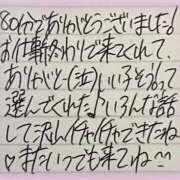 80分でありがとうございました!
お仕事終わりで来てくれて、
ありがとー(泣)いいふそうって
選んでくれた♪いろんな話
して沢山イチャイチャできたね
♡またいつでも来てね〜